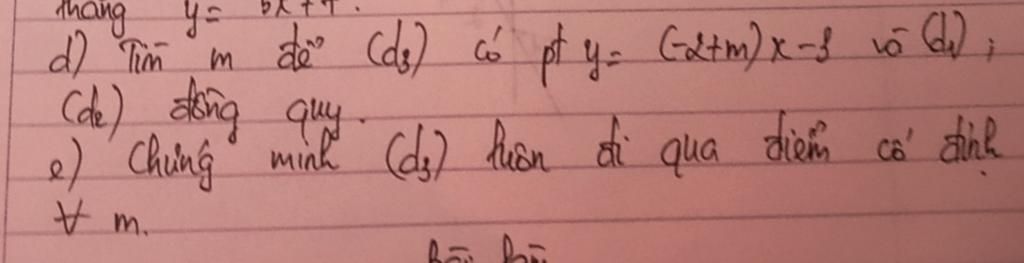 thẳng y=
d) Tìm m để (d3) có pt y= (-2+m)x-3 và (d1);
(d2) đồng quy.
e) Chứng minh (d3) luôn đi qua điểm cố định
∀ m.